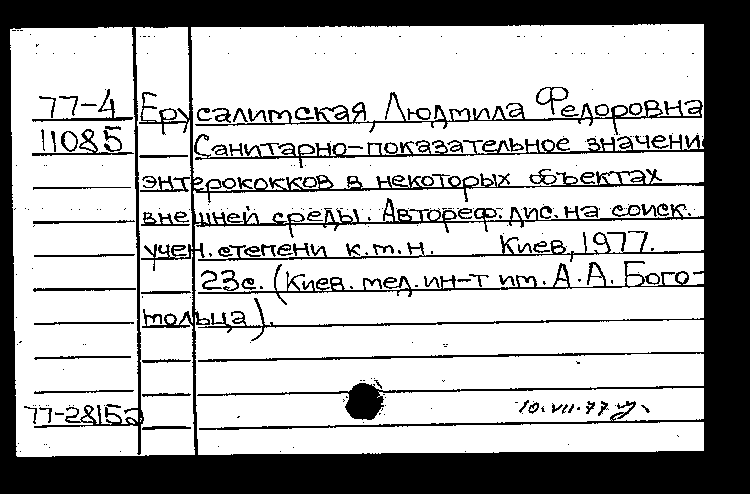 77-4 Ерусалимская, Людмила Федоровна
11085 Санитарно-показательное значени
энтерококков в некоторых объектах
внешней среды. Автореф. дис. на соиск.
учен. степени к.м.н. Киев, 1977.
23с. (Киев. мед. ин-т им. А.А. Бого-
мольца).
77-28152
10.VII.77